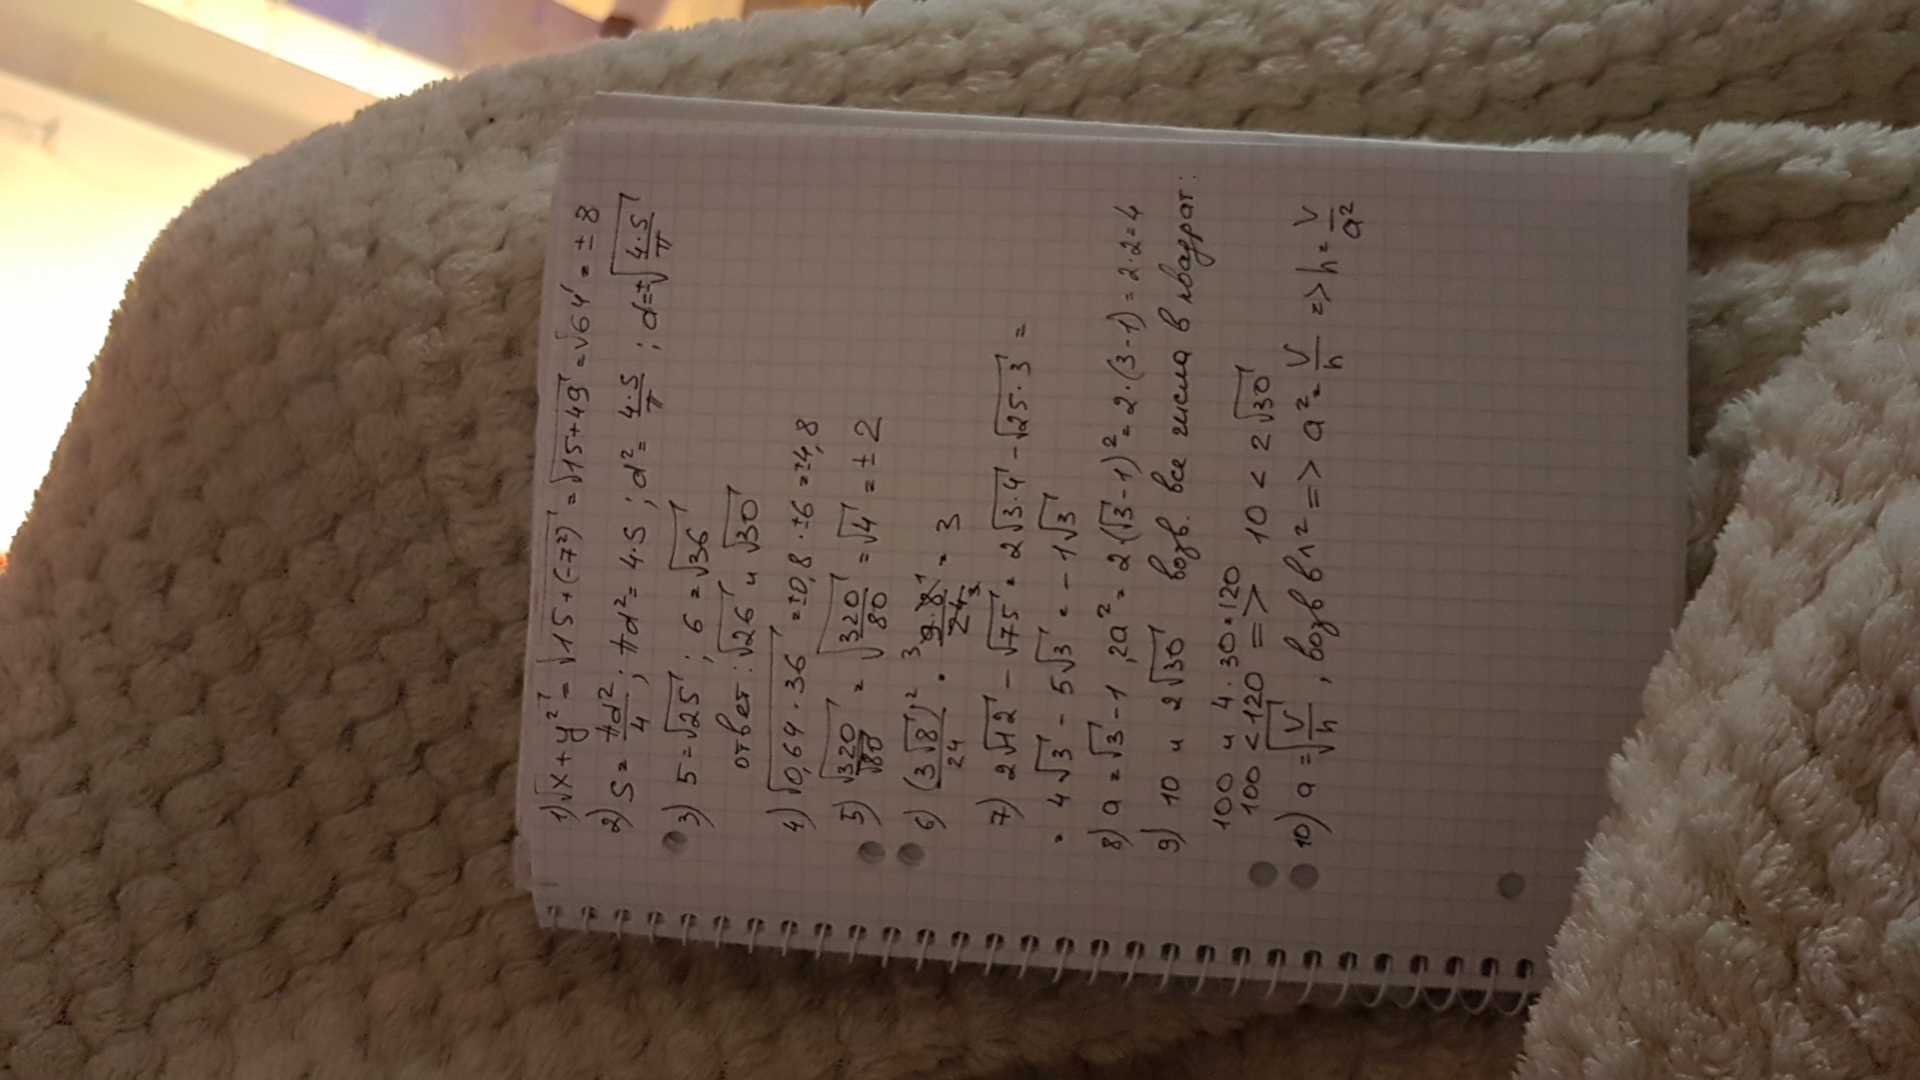 1) √x+y² = √15+(-7²) = √15+49 = √64 = ±8
2) S = πd²/4 ; πd² = 4·S ; d² = 4·S/π ; d=±√4·S/π
3) 5 = √25 ; 6 = √36
ответ: √26 и √30
4) √0,64·36 = ±0,8 · ±6 = ±4,8
5) √320/√80 = √320/80 = √4 = ±2
6) (3√8)²/24 = 9·8/24 = 3
7) 2√12 - √75 = 2√3·4 - √25·3 =
= 4√3 - 5√3 = -1√3
8) a = √3-1, 2a² = 2(√3-1)² = 2·(3-1) = 2·2=4
9) 10 и 2√30 возв. все числа в квадрат:
100 и 4·30=120
100 < 120 => 10 < 2√30
10) a = √V/h , возв в ^² => a² = V/h => h = V/a²